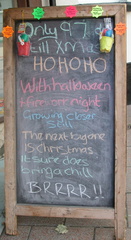 Only 97 d
till Xma
HO HO HO
With halloween
Here or night
Growing closer
Still
The next big one
is christmas
It sure does
bring a chill
B.R.R.R.R!!